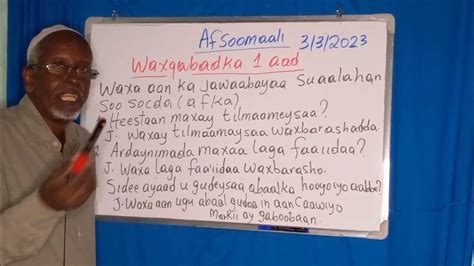 Afsoomaali 3/3/2023
Waxqabadka 1 aad
Waxa aan ka Jawaabayaa Suaalahan
Soo socda (afka)
Heestaan maxay tilmaameysaa?
J. waxay tilmaamaysaa waxbarashadda.
2. Ardaynimada maxaa laga faa'iidaa?
J. Waxa laga faa'iidaa waxbarasho.
Sidee ayaad u gudeysaa abaalka hooyo iyo aabbe?
J. Waxa aan ugu abaal gudaa in aan Caawiyo
Markii ay gaboobaan.